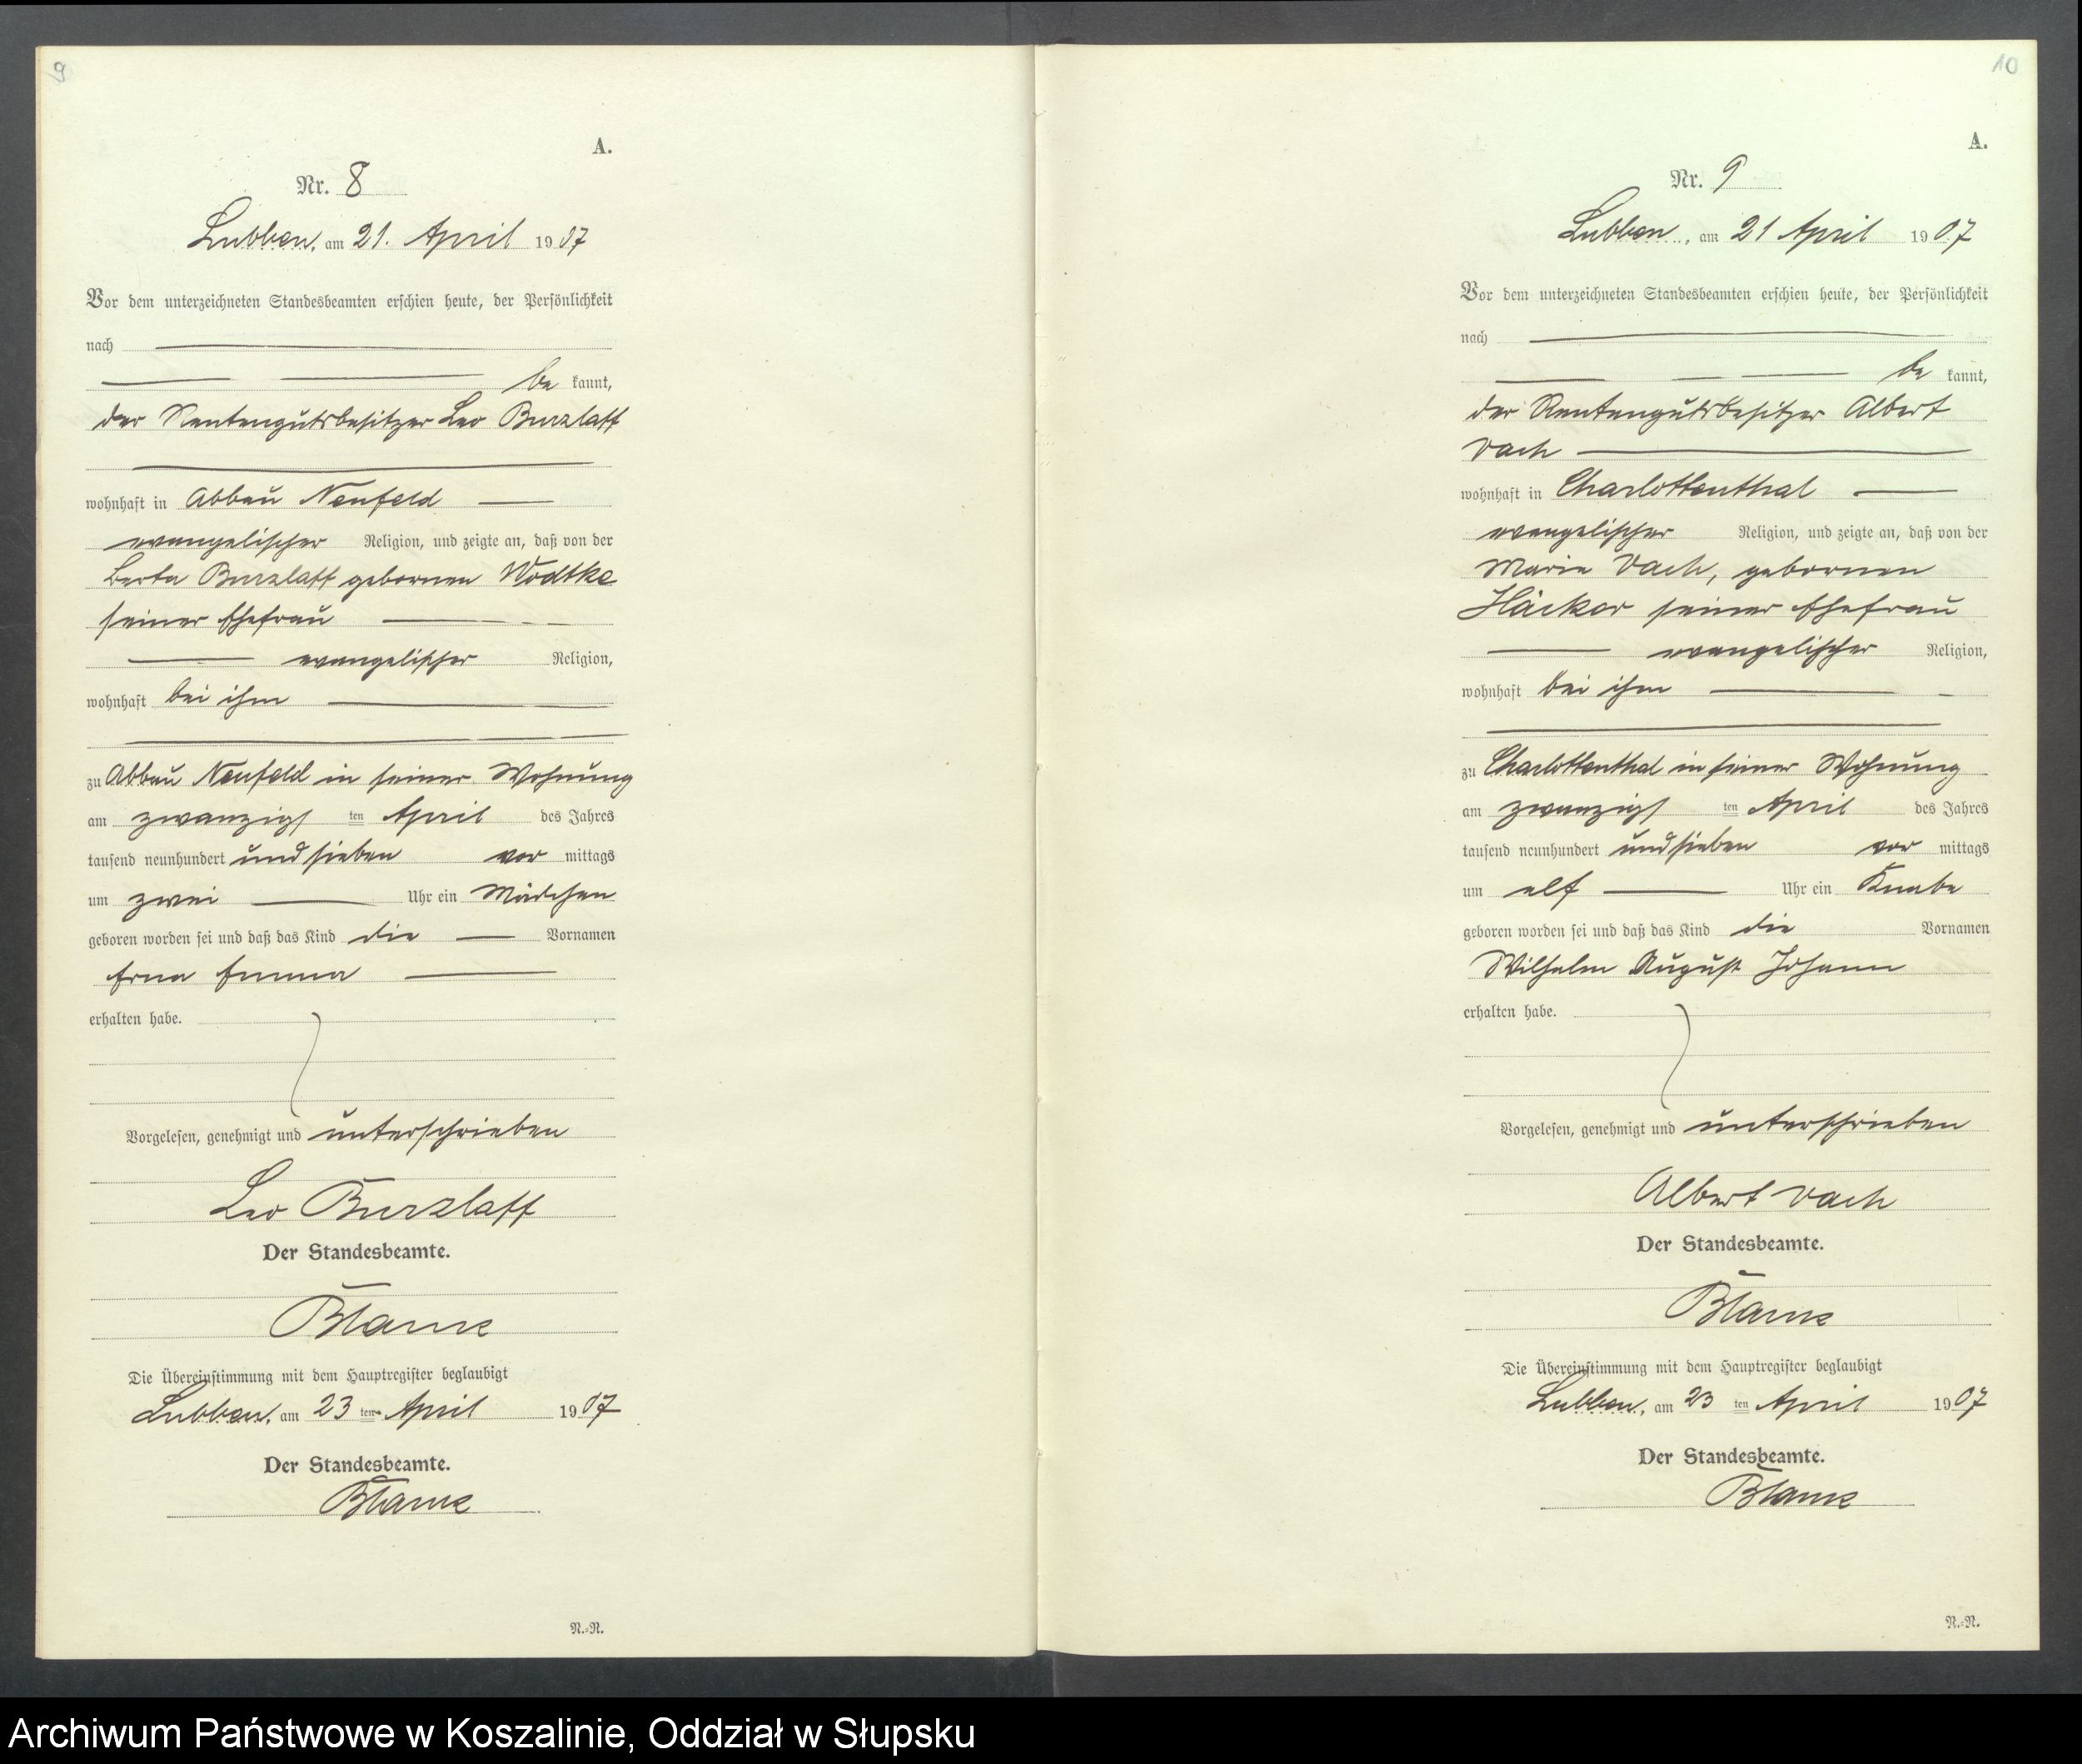 9
A.
Nr. 8
Lubben, am 21. April 1907
Vor dem unterzeichneten Standesbeamten erschien heute, der Persönlichkeit
nach
be kannt,
der Rentengutsbesitzer Leo Burzlaff
wohnhaft in Abbau Neufeld
evangelischer Religion, und zeigte an, daß von der
Berta Burzlaff gebornen Wodtke
seiner Ehefrau
evangelischer Religion,
wohnhaft bei ihm
zu Abbau Neufeld in seiner Wohnung
am zwanzigs ten April des Jahres
tausend neunhundert und sieben vor mittags
um zwei Uhr ein Mädchen
geboren worden sei und daß das Kind die Vornamen
Erna Emma
erhalten habe.
Vorgelesen, genehmigt und unterschrieben
Leo Burzlaff
Der Standesbeamte.
Die Übereinstimmung mit dem Hauptregister beglaubigt
Lubben, am 23 ten April 1907
Der Standesbeamte.
N.=N.
10
A.
Nr. 9
Lubben, am 21 April 1907
Vor dem unterzeichneten Standesbeamten erschien heute, der Persönlichkeit
nach
be kannt,
der Rentengutsbesitzer Albert
Vach
wohnhaft in Charlottenthal
evangelischer Religion, und zeigte an, daß von der
Marie Vach, gebornen
Häcker seiner Ehefrau
evangelischer Religion,
wohnhaft bei ihm
zu Charlottenthal in seiner Wohnung
am zwanzigs ten April des Jahres
tausend neunhundert und sieben vor mittags
um elf Uhr ein Knabe
geboren worden sei und daß das Kind die Vornamen
Wilhelm August Johann
erhalten habe.
Vorgelesen, genehmigt und unterschrieben
Albert Vach
Der Standesbeamte.
Die Übereinstimmung mit dem Hauptregister beglaubigt
Lubben, am 23 ten April 1907
Der Standesbeamte.
N.=N.
Archiwum Państwowe w Koszalinie, Oddział w Słupsku